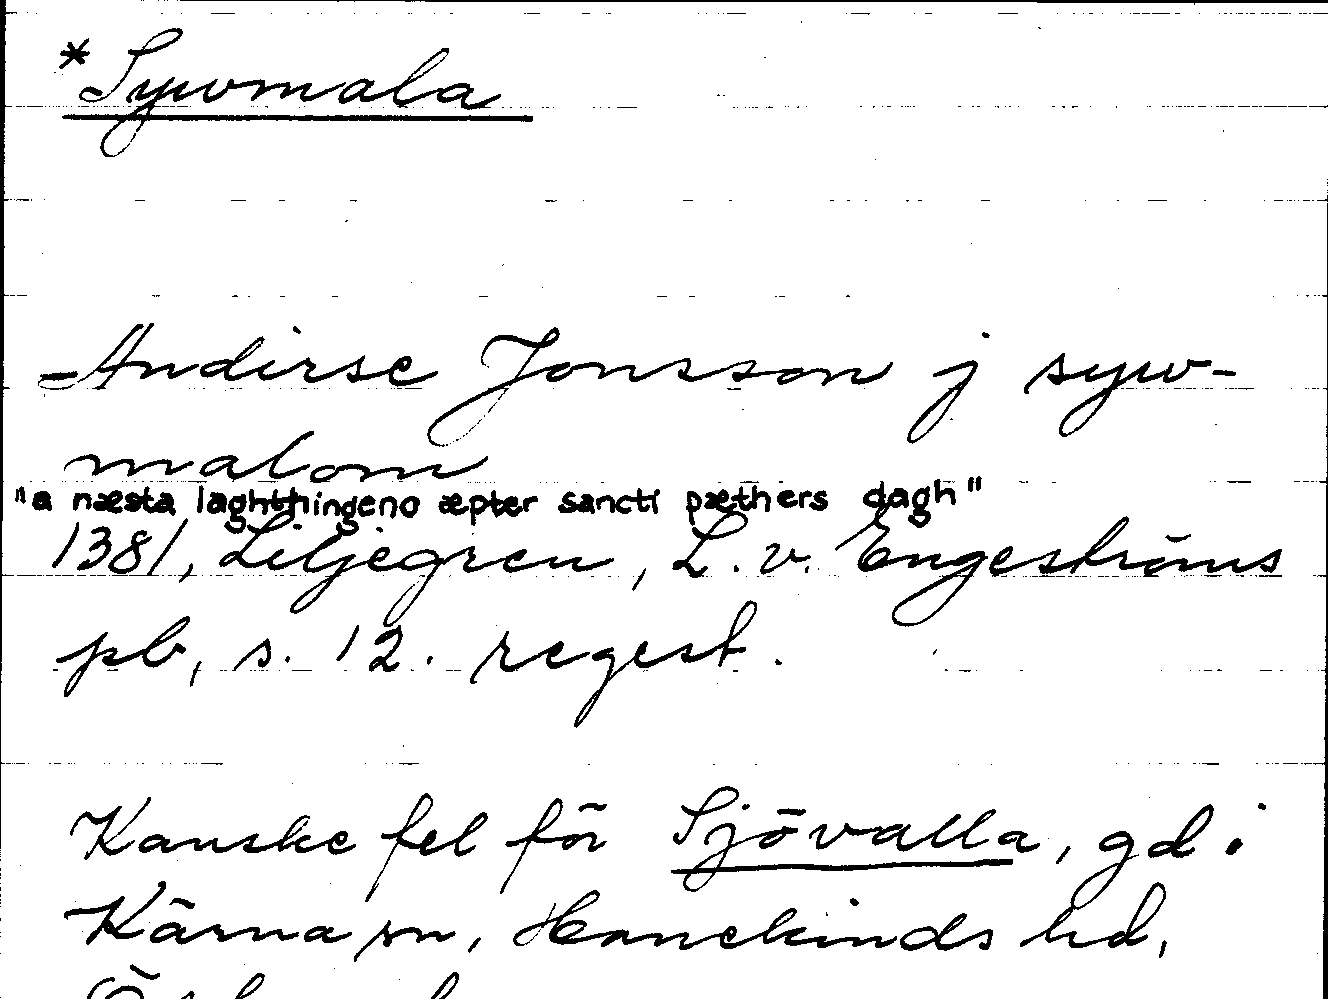 *Sywmala
Andirse Jonsson j syw-
malom
"a næsta laghthingeno æpter sancti pæthers dagh"
1381, Liljegren, L. v. Engeströms
pb, s. 12. regest.
Kanske fel för Sjövalla, gd i
Kärna sn, Hanekinds hd,